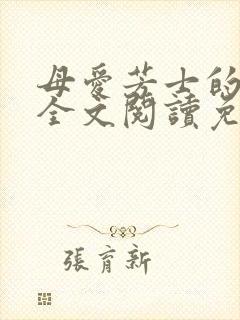 母愛芳士的
全文閱讀免
張育新